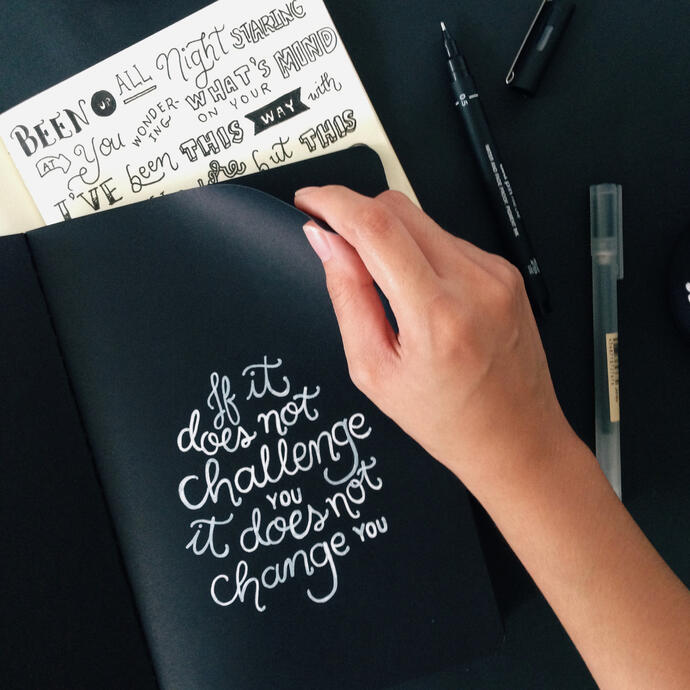 BEEN UP ALL Night STARING
AT You WONDER-
ING WHAT'S
ON YOUR MIND
I'VE been THIS WAY with
but THIS
If it
does not
challenge
YOU
it does not
change YOU